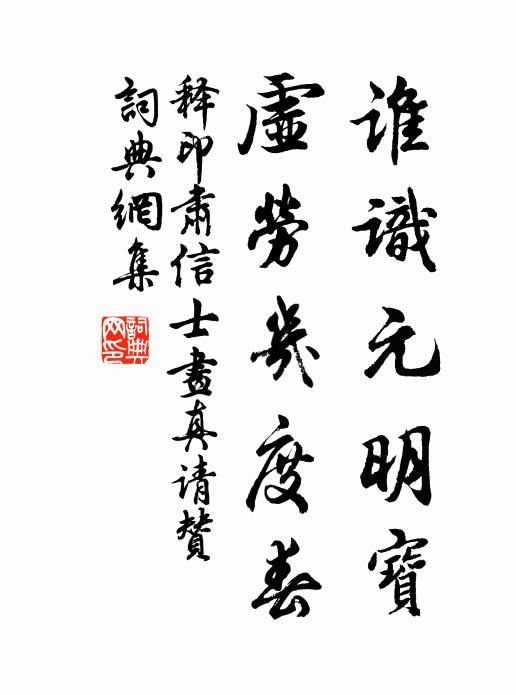 誰識元明寶
虛勞幾度春
释印肅信士畫真请贊
詞典網集
詞典網印